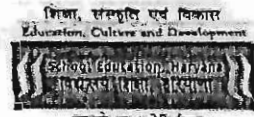 शिक्षा, संस्कृति एवं विकास
Education, Culture and Development
School Education, Haryana
विद्यालय शिक्षा, हरियाणा